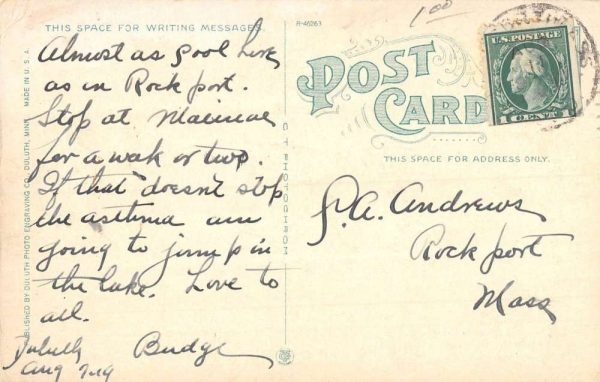 THIS SPACE FOR WRITING MESSAGES.
Almost as pool here
as in Rockport.
Stop at
for a wak or two.
If that doesn't stop
the asthma am
going to jump in
the lake. Love to
all.
Duluth
Aug
Budge
PUBLISHED BY DULUTH PHOTO ENGRAVING CO., DULUTH, MINN. MADE IN U.S.A.
C.T. PHOTOCHROM
R-46263
1.00
POST
CARD
THIS SPACE FOR ADDRESS ONLY.
U.S. POSTAGE
1 CENT 1
P.A. Andrews
Rockport
Mass